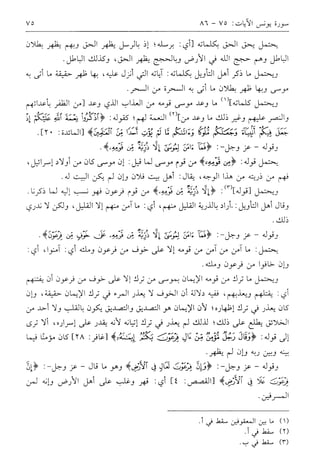 سورة يونس الآيات: ٧٥ - ٨٦ ٧٥
يحتمل يحق الحق بكلماته [أي: برسله؛ إذ بالرسل يظهر الحق وبهم يظهر بطلان
الباطل وهم حجج الله في الأرض وبالحجج يظهر الحق، وكذلك الباطل.
ويحتمل ما ذكر أهل التأويل بكلماته: آياته التي أنزل عليه، بها ظهر حقيقة ما أتى به
موسى وبها ظهر بطلان ما أتى به السحرة من السحر.
ويحتمل كلماته](١) ما وعد موسى قومه من العذاب الذي وعد [من الظفر بأعدائهم
والنصر عليهم وغير ذلك ما وعد من](٢) النعمة لهم؛ كقوله: ﴿اذْكُرُوا نِعْمَةَ اللَّهِ عَلَيْكُمْ إِذْ
جَعَلَ فِيكُمْ أَنْبِيَاءَ وَجَعَلَكُمْ مُلُوكًا وَآتَاكُمْ مَا لَمْ يُؤْتِ أَحَدًا مِنَ الْعَالَمِينَ﴾ [المائدة: ٢٠].
وقوله - عز وجل-: ﴿فَمَا آمَنَ لِمُوسَى إِلَّا ذُرِّيَّةٌ مِنْ قَوْمِهِ﴾.
يحتمل قوله: ﴿مِنْ قَوْمِهِ﴾ من قوم موسى لما قيل: إن موسى كان من أولاد إسرائيل،
فهم من ذريته من هذا الوجه، يقال: أهل بيت فلان وإن لم يكن البيت له.
ويحتمل [قوله](٣): ﴿إِلَّا ذُرِّيَّةٌ مِنْ قَوْمِهِ﴾ من قوم فرعون فهو نسب إليه لما ذكرنا.
وقال أهل التأويل: أراد بالذرية القليل منهم، أي: ما آمن منهم إلا القليل، ولكن لا ندري
ذلك.
وقوله - عز وجل-: ﴿فَمَا آمَنَ لِمُوسَى إِلَّا ذُرِّيَّةٌ مِنْ قَوْمِهِ عَلَى خَوْفٍ مِنْ فِرْعَوْنَ﴾.
يحتمل: ما آمن من آمن من قومه إلا على خوف من فرعون وملئه أي: آمنوا، أي:
وإن خافوا من فرعون وملئه.
ويحتمل ما ترك من قومه الإيمان بموسى من ترك إلا على خوف من فرعون أن يفتنهم
أي: يقتلهم ويعذبهم، ففيه دلالة أن الخوف لا يعذر المرء في ترك الإيمان حقيقة، وإن
كان يعذر في ترك إظهاره؛ لأن الإيمان هو التصديق والتصديق يكون بالقلب ولا أحد من
الخلائق يطلع على ذلك؛ لذلك لم يعذر في ترك إتيانه لأنه يقدر على إسراره، ألا ترى
إلى قوله: ﴿وَقَالَ رَجُلٌ مُؤْمِنٌ مِنْ آلِ فِرْعَوْنَ يَكْتُمُ إِيمَانَهُ﴾ [غافر: ٢٨] كان مؤمنًا فيما
بينه وبين ربه وإن لم يظهر.
وقوله - عز وجل-: ﴿وَإِنَّ فِرْعَوْنَ لَعَالٍ فِي الْأَرْضِ﴾ وهو ما قال - عز وجل-: ﴿إِنَّ
فِرْعَوْنَ عَلَا فِي الْأَرْضِ﴾ [القصص: ٤] أي: قهر وغلب على أهل الأرض وإنه لمن
المسرفين.
(١) ما بين المعقوفين سقط في أ.
(٢) سقط في أ.
(٣) سقط في ب.